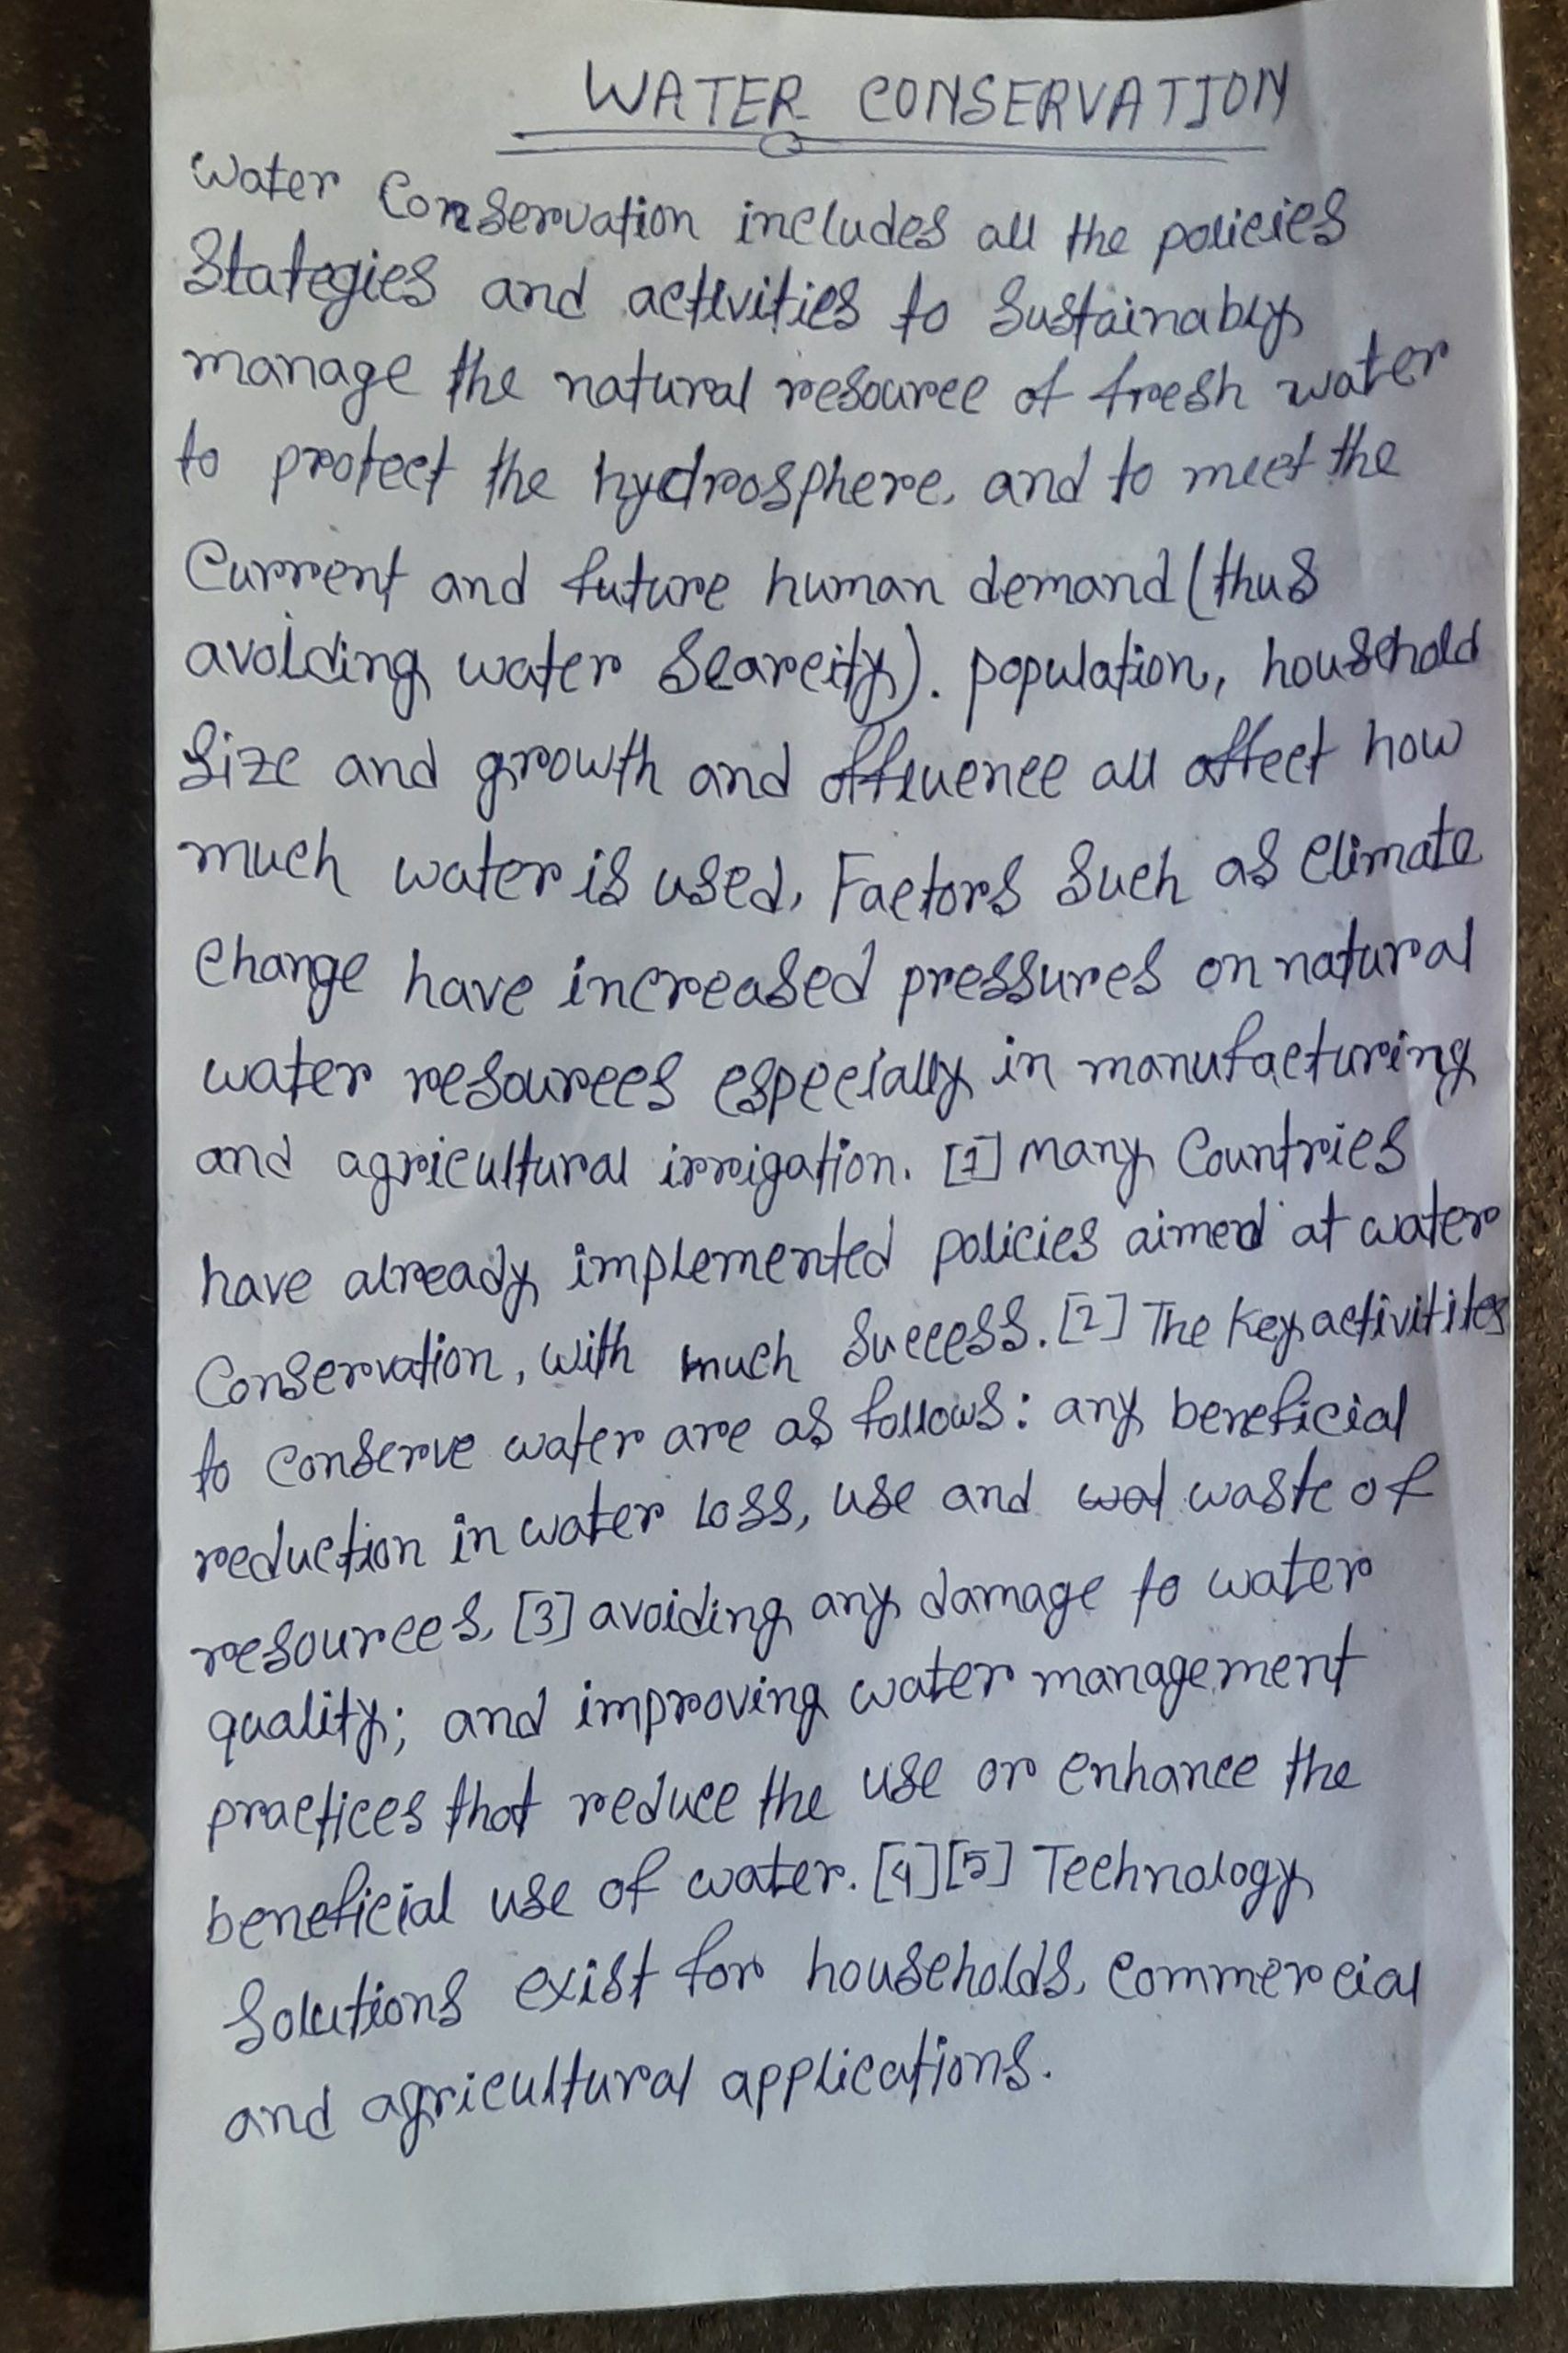 WATER CONSERVATION
Water Conservation includes all the policies
Stategies and activities to Sustainably
manage the natural resource of fresh water
to protect the hydrosphere, and to meet the
Current and future human demand (thus
avoiding water Scarcity). population, household
Size and growth and affluence all affect how
much water is used, Factors Such as Climate
Change have increased pressures on natural
water resources especially in manufacturing
and agricultural irrigation. [1] Many Countries
have already implemented policies aimed at water
Conservation, with much Success. [2] The Key activitites
to Conserve water are as follows: any beneficial
reduction in water Loss, use and wat waste of
resources, [3] avoiding any damage to water
quality; and improving water management
practices that reduce the use or enhance the
beneficial use of water. [4] [5] Technology
Solutions exist for households, Commercial
and agricultural applications.